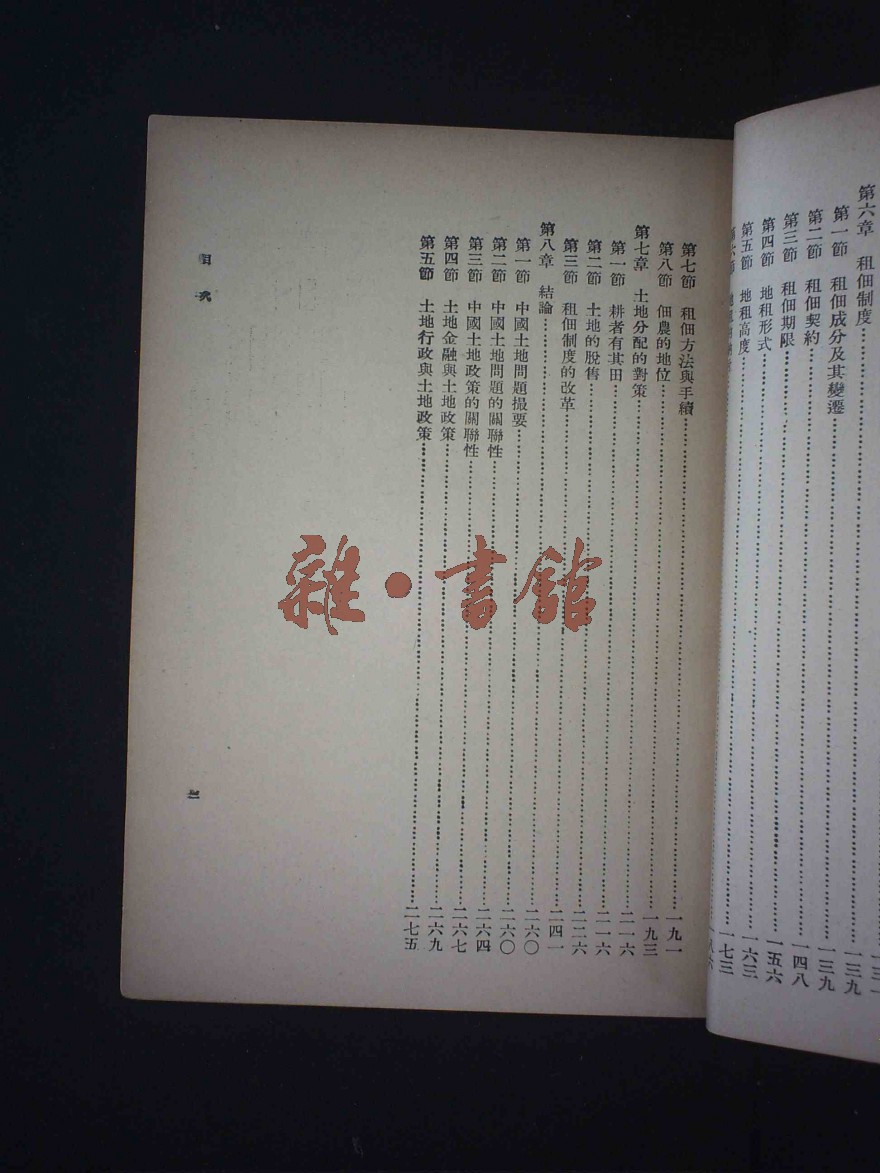 第六章 租佃制度……一三九
第一節 租佃成分及其變遷……一三九
第二節 租佃契約……一四八
第三節 租佃期限……一五六
第四節 地租形式……一六三
第五節 地租高度……一七三
第七節 租佃方法與手續……一九一
第八節 佃農的地位……一九三
第七章 土地分配的對策……二一六
第一節 耕者有其田……二一六
第二節 土地的脫售……二二六
第三節 租佃制度的改革……二四一
第八章 結論……二六〇
第一節 中國土地問題撮要……二六〇
第二節 中國土地問題的關聯性……二六四
第三節 中國土地政策的關聯性……二六七
第四節 土地金融與土地政策……二六九
第五節 土地行政與土地政策……二七五
目次
雜·書館